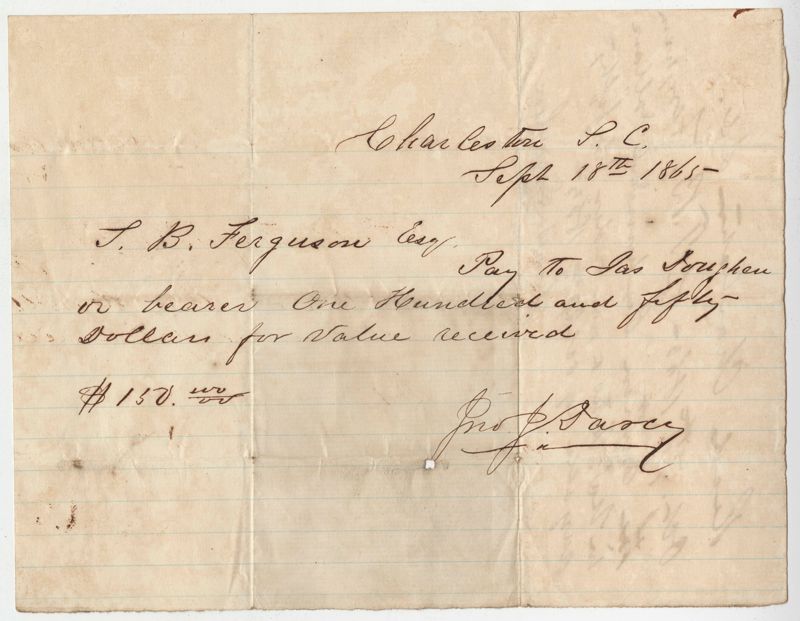 Charleston S. C.
Sept 18th 1865
T. B. Ferguson Esq.
Pay to Jas Doughen
or bearer One Hundred and fifty
Dollars for Value received
$150. no/00
Jno J. Darcy